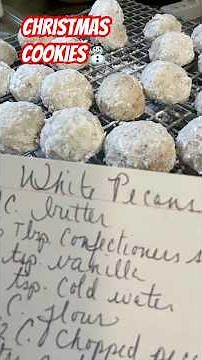 CHRISTMAS
COOKIES☃️
White Pecans
C. butter
Tbsp. Confectioners s
tsp. vanilla
tsp. cold water
C. flour
2 C. Chopped pec